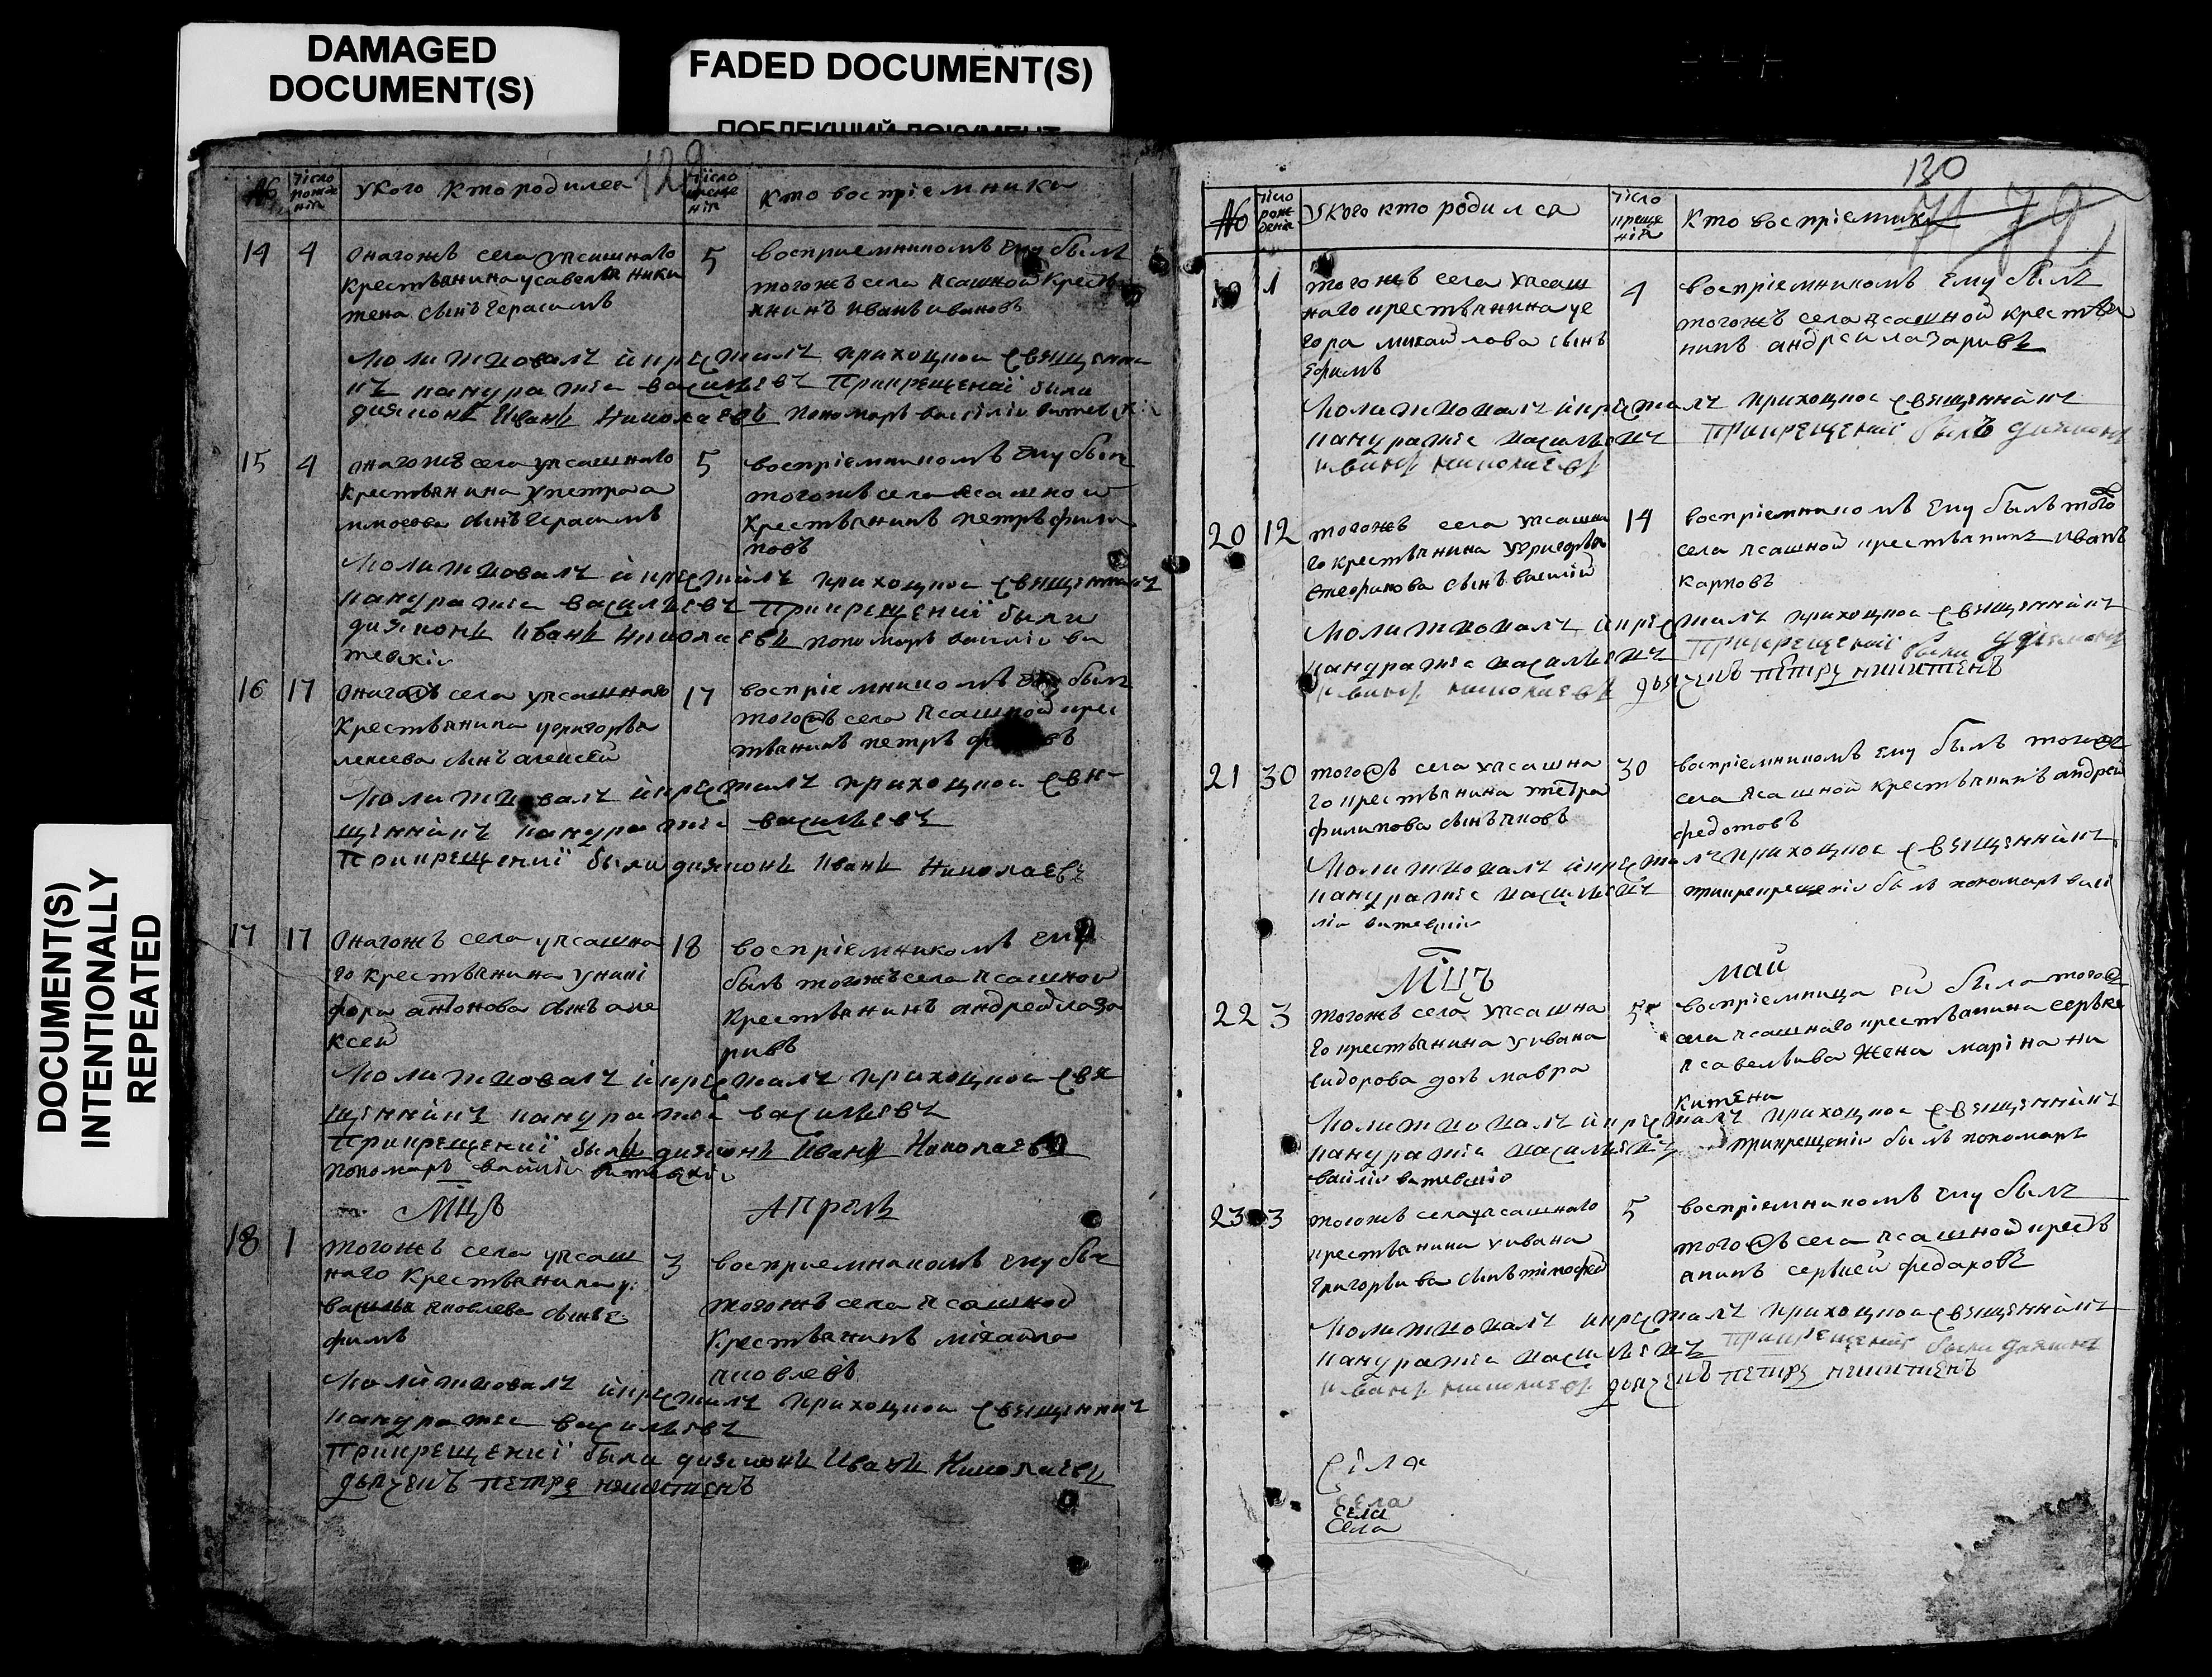 DAMAGED
DOCUMENT(S)
FADED DOCUMENT(S)
ПОБЛЕКШИЙ ДОКУМЕНТ
DOCUMENT(S)
INTENTIONALLY
REPEATED
129
№
число рожде ния
у кого кто родилса
число креще ния
кто восприемники
14 4 онагожъ села уясашнаго 5
крестьянина усавелья ники
тена сынъ герасимъ
восприемникомъ ему былъ
тогожъ села ясашной кресть
янинъ иванъ ивановъ
молитвовалъ икрестилъ приходцкоі священни
къ панкратіе васильевъ прикрещениі были
дияконъ Иванъ Николаевъ пономарь василіи
15 4 онагожъ села уясашнаго 5
крестьянина упетра а
сынъ герасимъ
восприемникомъ ему былъ
тогожъ села ясашной
крестьянинъ петръ фили
повъ
молитвовалъ икрестилъ приходцкоі священникъ
панкратіе васильевъ прикрещениі были
дияконъ иванъ николаевъ пономарь василіи ви
тевскіи
16 17 онагожъ села уясашнаго 17
крестьянина угригорья
лексеева сынъ алексей
восприемникомъ былъ
тогожъ села ясашной крес
тьянинъ петръ
молитвовалъ икрестилъ приходцкоі свя
щенникъ панкратіе васильевъ
прикрещениі были дияконъ Иванъ Николаевъ
17 17 онагожъ села уясашна 18
го крестьянина уники
фора антонова сынъ але
ксей
восприемникомъ ему
былъ тогожъ села ясашной
крестьянинъ андрей лаза
ривъ
молитвовалъ икрестилъ приходцкоі свя
щенникъ панкратіе васильевъ
прикрещениі были дияконъ Иванъ Николаевъ
пономарь василіи витевскіи
МЦЪ АПрель
18 1 тогожъ села уясаш 3
наго крестьянина у
василья яковлева сынъ е
фимъ
восприемникомъ ему былъ
тогожъ села ясашной
крестьянинъ міхаила
яковлевъ
молитвовалъ икрестилъ приходцкоі священникъ
панкратіе васильевъ
прикрещениі были дияконъ Иванъ Николаевъ
дьячекъ петръ никитенъ
130
79
№
число рож дения
у кого кто родилса
число креще ния
кто восприемники
1 тогожъ села уясаш 4
наго крестьянина уе
гора михайлова сынъ
ефимъ
восприемникомъ ему былъ
тогожъ села ясашной крестья
нинъ андреи лазаривъ
молитвовалъ икрестилъ приходцкоі священникъ
панкратіе васильевъ прикрещениі былъ дияконъ
иванъ николаевъ
20 12 тогожъ села уясашна 14
го крестьянина угригорья
сынъ василій
восприемникомъ ему былъ того
села ясашной крестьянинъ иванъ
карповъ
молитвовалъ икрестилъ приходцкоі священникъ
панкратіе васильевъ прикрещениі были дияконъ
иванъ николаевъ дьячекъ петръ никитенъ
21 30 тогожъ села уясашна 30
го крестьянина петра
филипова сынъ яковъ
восприемникомъ ему былъ тогожъ
села ясашной крестьянинъ андрей
федотовъ
молитвовалъ икрестилъ приходцкоі священникъ
панкратіе васильевъ прикрещеніи былъ пономарь васі
ліи витевскіи
МЦЪ май
22 3 тогожъ села уясашна 5
го крестьянина уивана
сидорова дочь мавра
восприемница ей была тогожъ
села ясашнаго крестьянина
жена марина ни
китени
молитвовалъ икрестилъ приходцкоі священникъ
панкратіе васильевъ прикрещеніи былъ пономарь
василіи витевскіи
23 3 тогожъ села уясашнаго 5
крестьянина уивана
григорьива сынъ тімофей
восприемникомъ ему былъ
тогожъ села ясашной кресть
янинъ сергией федаровъ
молитвовалъ икрестилъ приходцкоі священникъ
панкратіе васильевъ прикрещениі были дияконъ
иванъ николаевъ дьячекъ петръ никитенъ
села
села
села
села